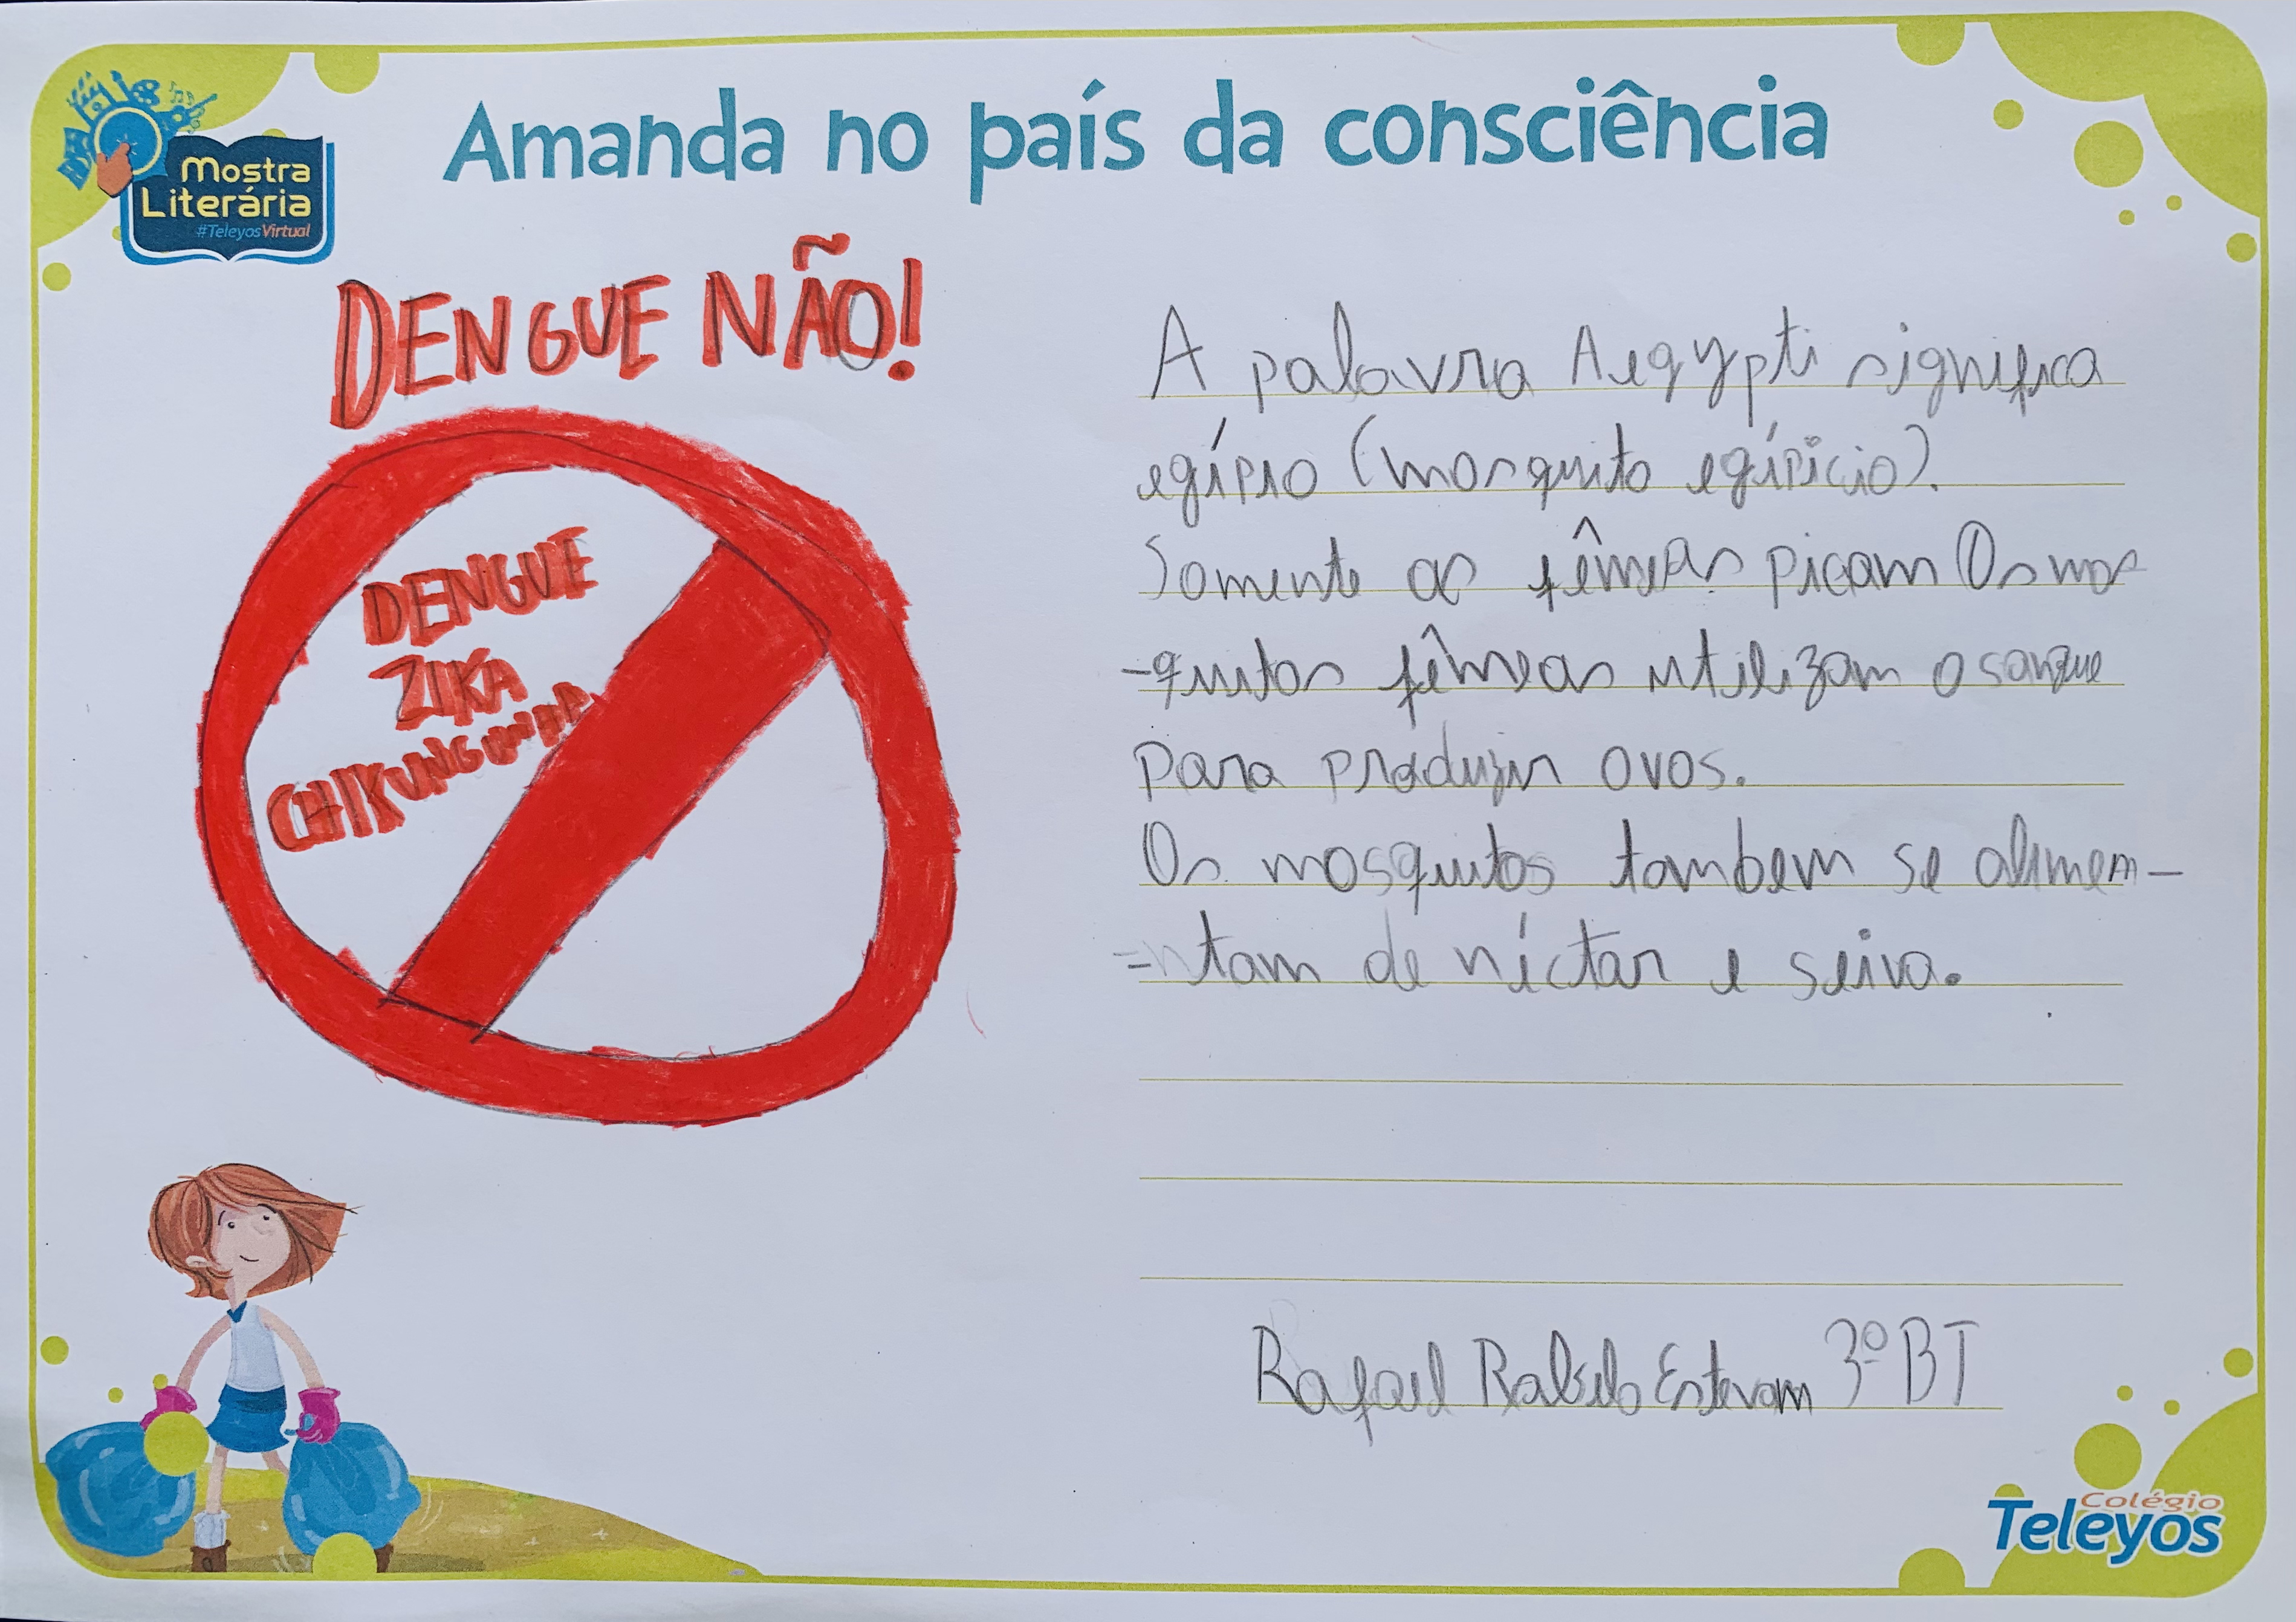 Amanda no país da consciência
Mostra
Literária
#TeleyosVirtual
DENGUE NÃO!
DENGUE
ZIKA
CHIKUNGUNYA
A palavra Aegypti significa
egípio (mosquito egípicio).
Somente as fêmeas picam Os mos
-quitos fêmeas utilizam o sangue
para produzir ovos.
Os mosquitos tambem se alimen-
-ntam de níctar e seiva.
Rafael Rabelo Estevam 3º BT
Colégio
Teleyos